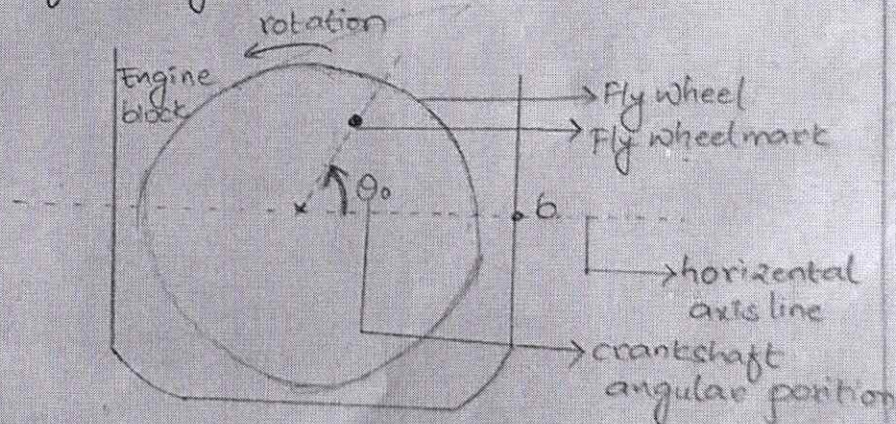 rotation
Engine
block
Fly wheel
Fly wheelmark
θ₀
b
horizental
axis line
crankshaft
angular position